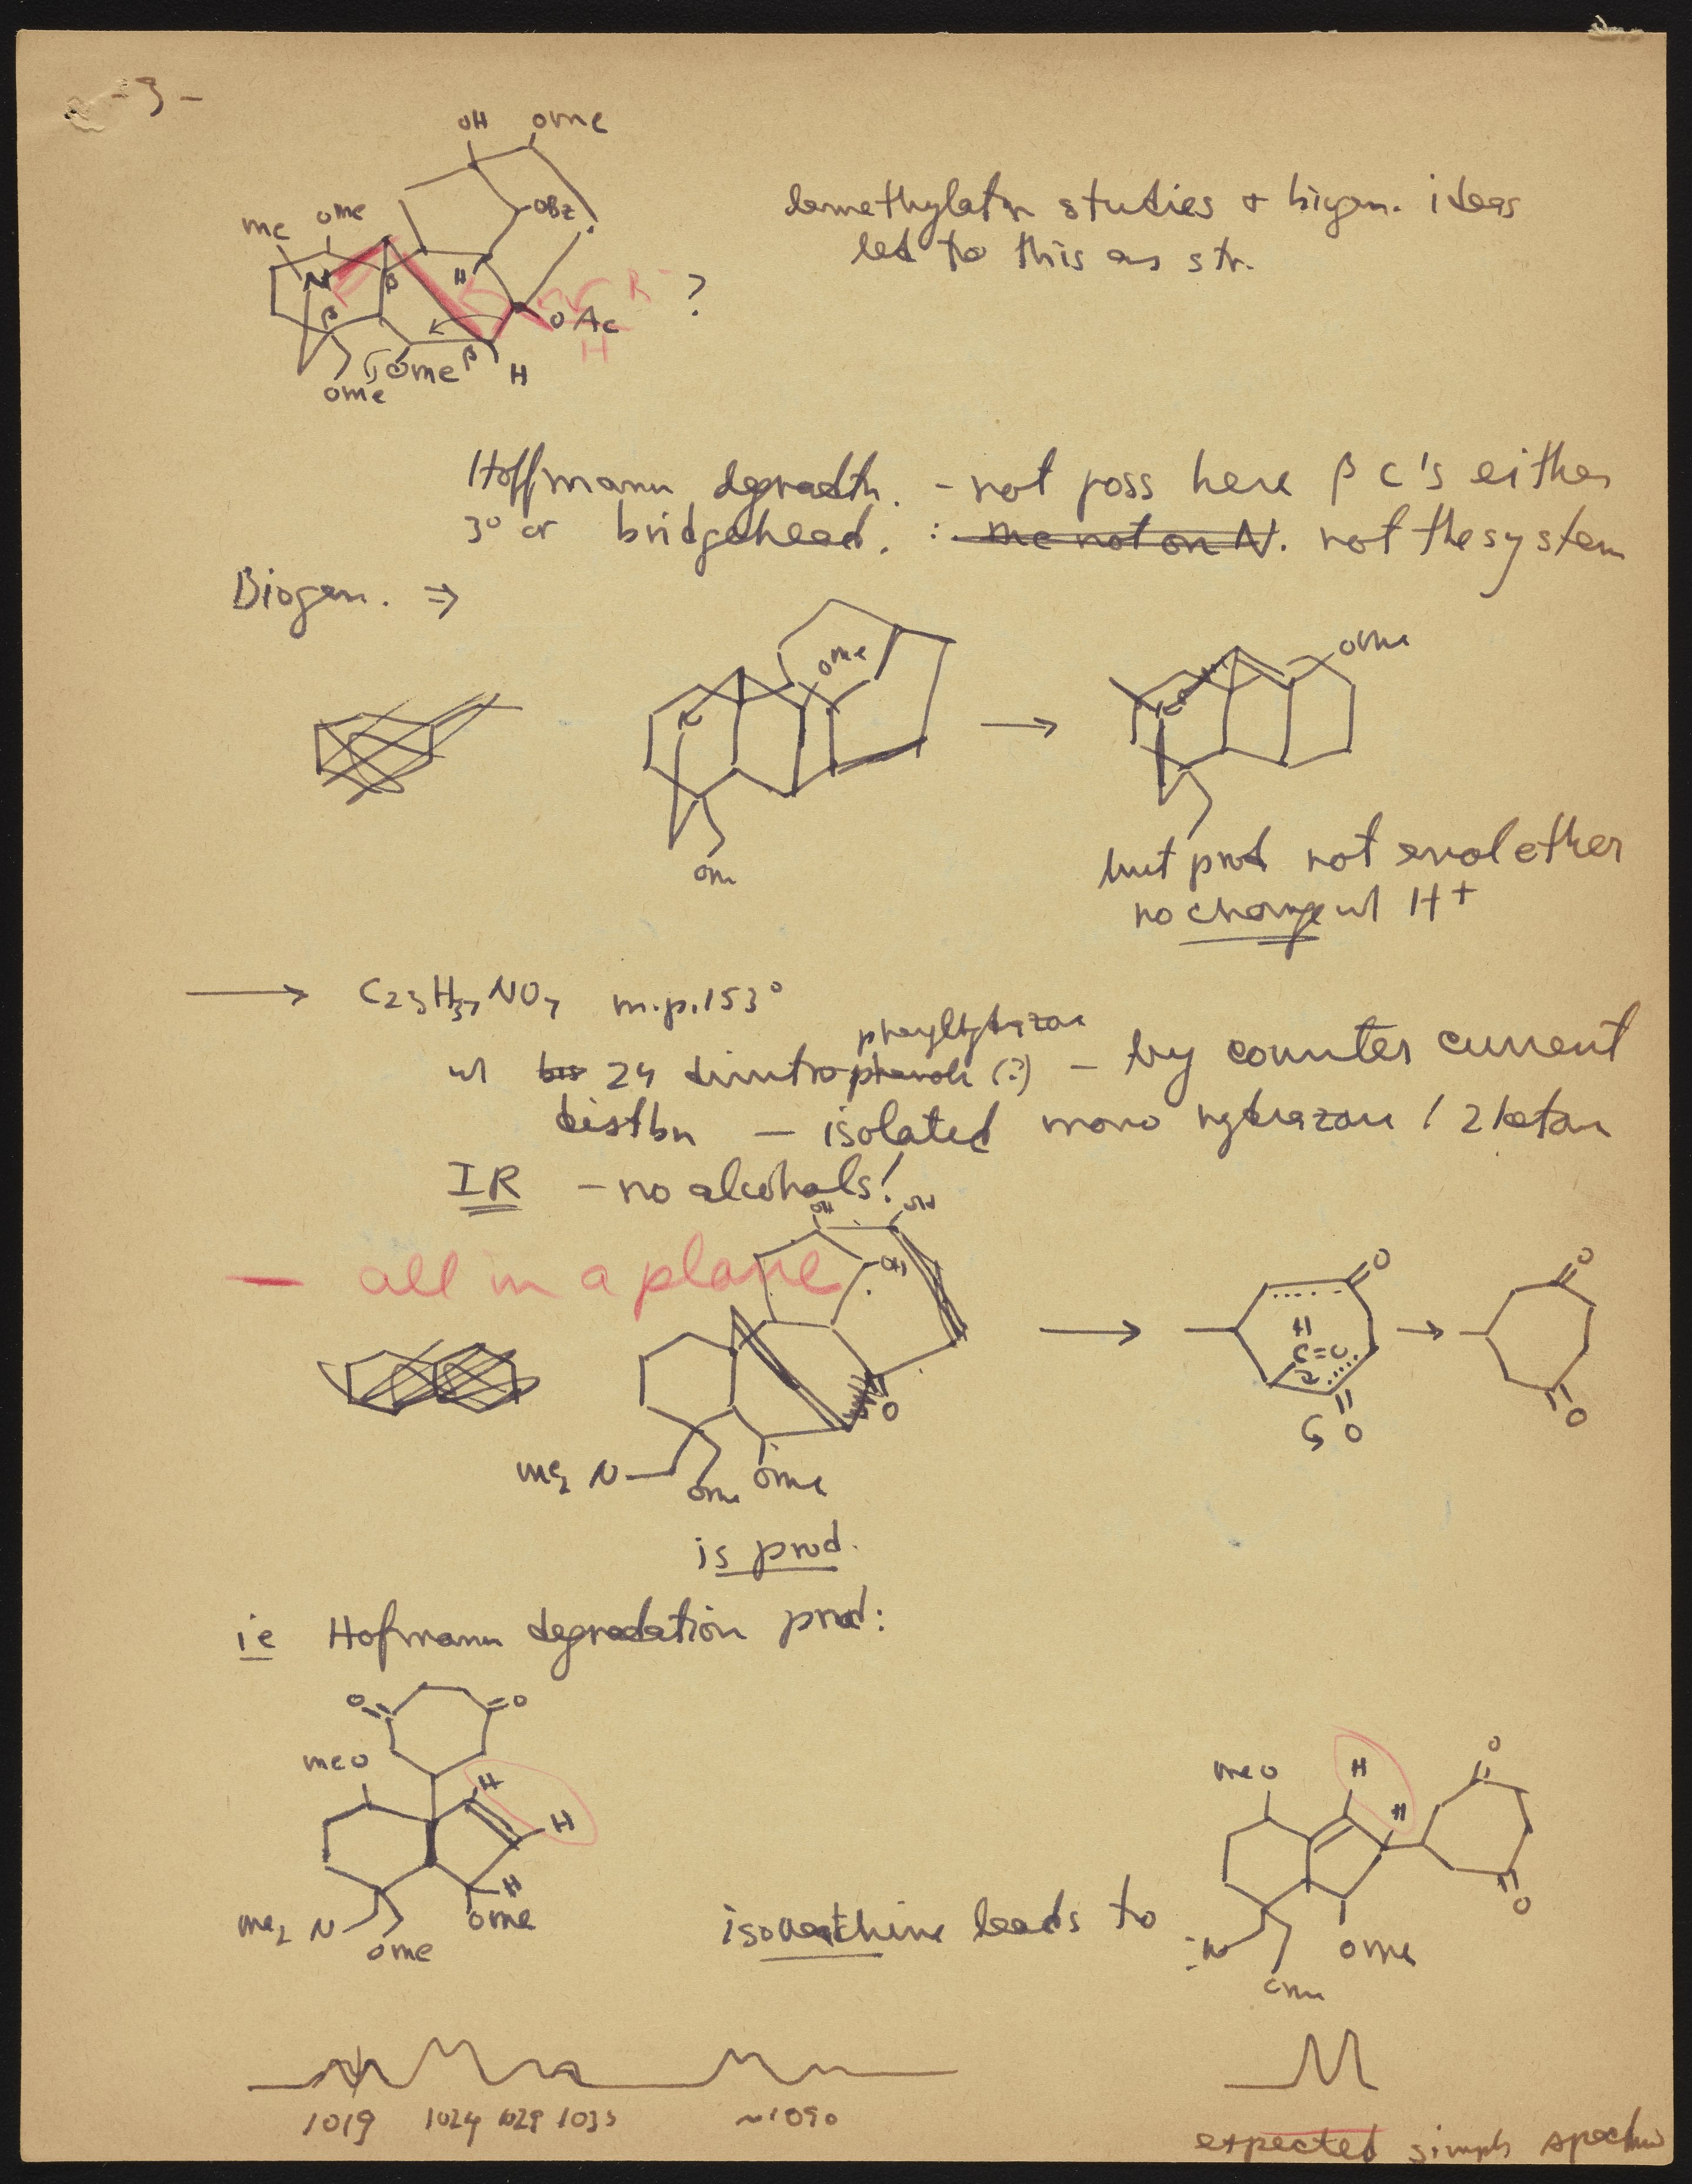 - 3 -
OH OMe
Me OMe OBz
demethylatn studies + biogen. ideas
led to this as str.
N β H or R ?
β OAc
H
OMe OMe β H
Hoffmann degradtn. - not poss here β C's either
3° or bridgehead. : me not on N. not the system
Biogen. ⇒
OMe
N
OMe
→
OMe
N
but prod not enol ether
no change w/ H+
→ C23H37NO7 m.p. 153°
phenylhydrazone
w/ bis 24 dinitrophenol (?) - by counter current
distbn - isolated mono hydrazone / 2 ketone
IR - no alcohols!
OH OH
- all in a plane
OH
O
→
O
H
C=O
O
→
O
O
Me2 N OMe OMe
is prod.
ie Hofmann degradation prod:
O O
MeO
H
H
H
Me2 N OMe OMe
leads to
MeO H
H
O
O
N OMe
1019 1024 1029 1035 ~1090
expected simple